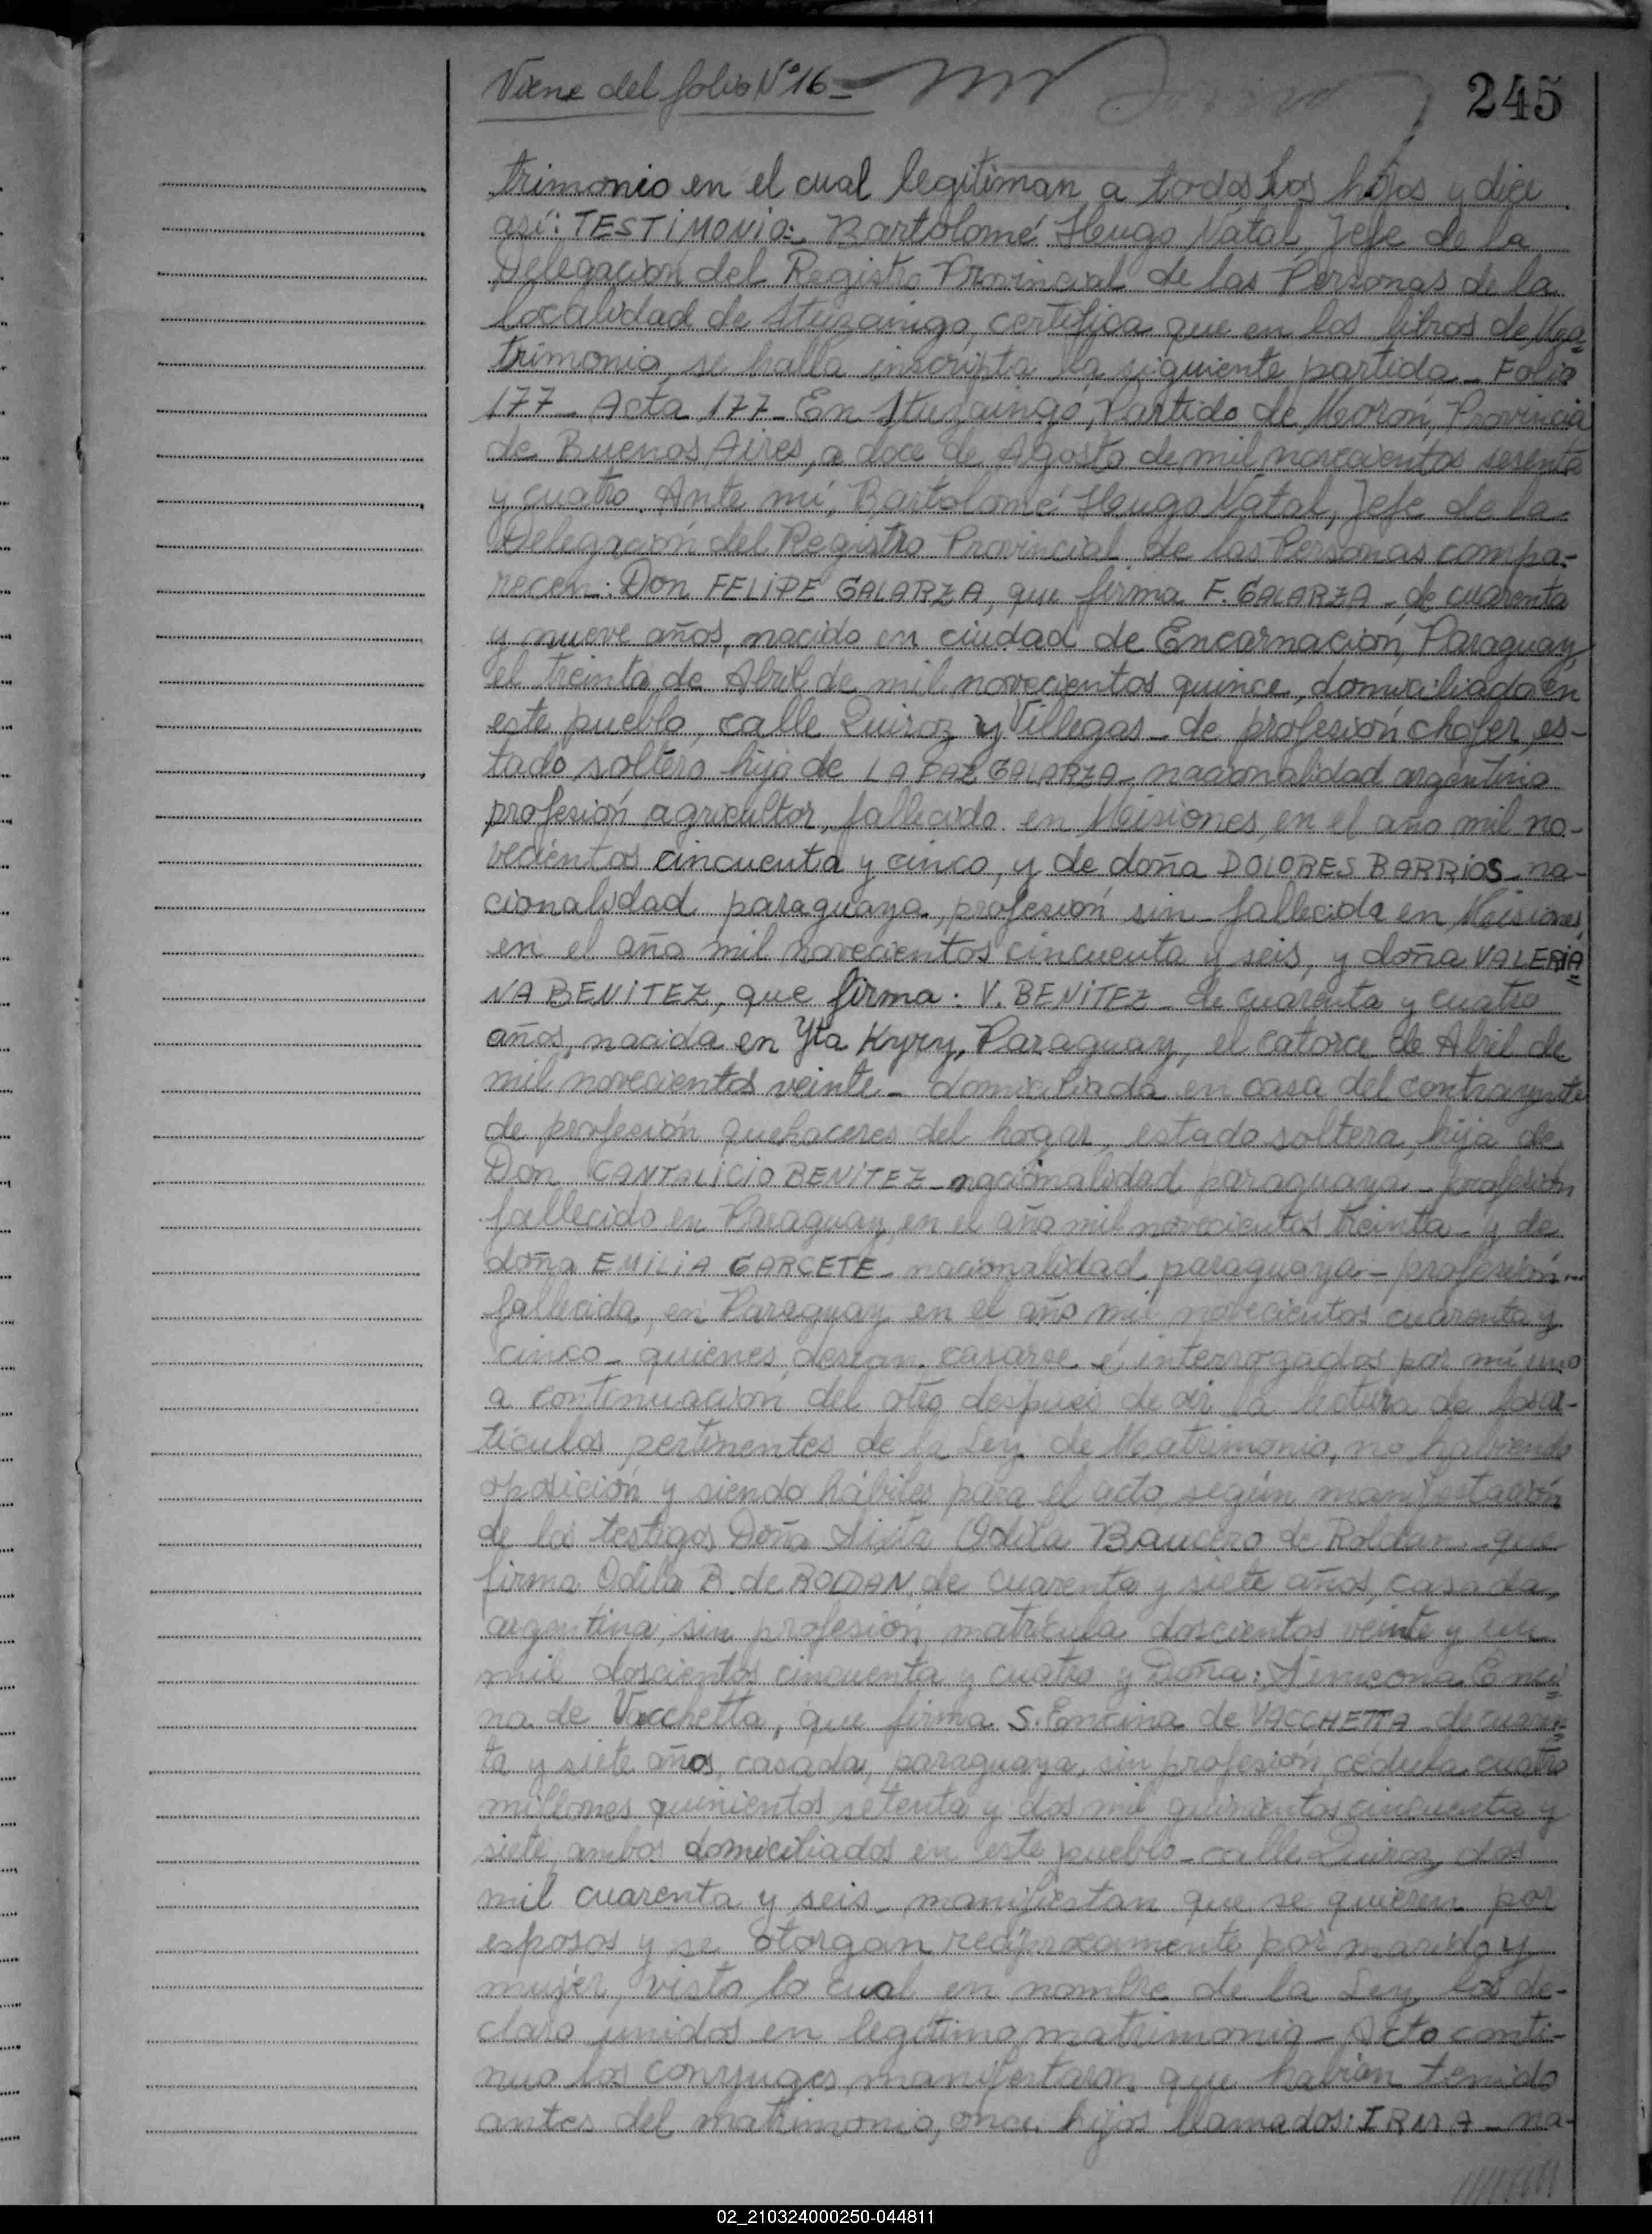 Viene del folio Nº 16-
245
trimonio en el cual legitiman a todos los hijos y dice
así: TESTIMONIO: Bartolomé Hugo Natal, Jefe de la
Delegación del Registro Provincial de las Personas de la
localidad de Ituzaingo, certifica que en los libros de Ma=
trimonio, se halla inscripta la siguiente partida - Folio
177 - Acta 177 - En Ituzaingó, Partido de Morón, Provincia
de Buenos Aires, a doce de Agosto de mil novecientos sesenta
y cuatro. Ante mí, Bartolomé Hugo Natal, Jefe de la
Delegación del Registro Provincial de las Personas compa-
recen: Don FELIPE GALARZA, que firma F. GALARZA - de cuarenta
y nueve años, nacido en ciudad de Encarnación, Paraguay,
el treinta de Abril de mil novecientos quince, domiciliado en
este pueblo, calle Quiroz y Villegas - de profesión chofer, es-
tado soltero hijo de LA PAZ GALARZA - nacionalidad argentino
profesión agricultor, fallecido en Misiones en el año mil no-
vecientos cincuenta y cinco, y de doña DOLORES BARRIOS - na-
cionalidad paraguaya, profesión sin - fallecida en Misiones,
en el año mil novecientos cincuenta y seis, y doña VALERIA=
NA BENITEZ, que firma: V. BENITEZ - de cuarenta y cuatro
años, nacida en Yta Kyry, Paraguay, el catorce de Abril de
mil novecientos veinte - domiciliada en casa del contrayente
de profesión quehaceres del hogar, estado soltera, hija de
Don CANTALICIO BENITEZ - nacionalidad paraguaya - profesión
fallecido en Paraguay, en el año mil novecientos treinta - y de
doña EMILIA GARCETE - nacionalidad paraguaya - profesión...
fallecida, en Paraguay en el año mil novecientos cuarenta y
cinco - quienes desean casarse é interrogados por mí uno
a continuación del otro después de oir la lectura de los ar-
tículos pertinentes de la Ley de Matrimonio, no habiendo
oposición y siendo hábiles para el acto, según manifestación
de los testigos Doña Sixta Odila Baucero de Roldan - que
firma Odila B. de ROLDAN, de cuarenta y siete años, casada,
argentina, sin profesión, matrícula doscientos veinte y un
mil doscientos cincuenta y cuatro y Doña: Simeona Enci=
na de Vacchetta, que firma S. Encina de VACCHETTA - de cuaren=
ta y siete años, casada, paraguaya, sin profesión, cédula cuatro
millones quinientos setenta y dos mil quinientos cincuenta y
siete ambos domiciliados en este pueblo - calle Quiroz dos
mil cuarenta y seis - manifiestan que se quieren por
esposos y se otorgan reciprocamente por marido y
mujer, visto lo cual en nombre de la Ley, los de-
claro unidos en legítimo matrimonio - Acto conti-
nuo los conyuges manifestaron que habían tenido
antes del matrimonio, once hijos llamados: IRMA - na-
02_210324000250-044811